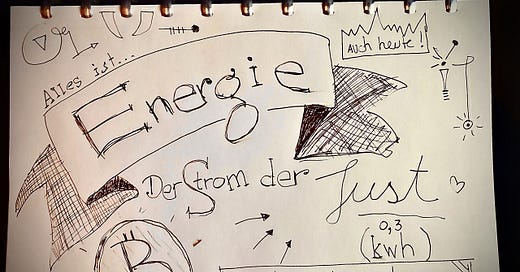 Alles ist...
Energie
Auch heute!
Der Strom der Just
0,3
(kwh)
B